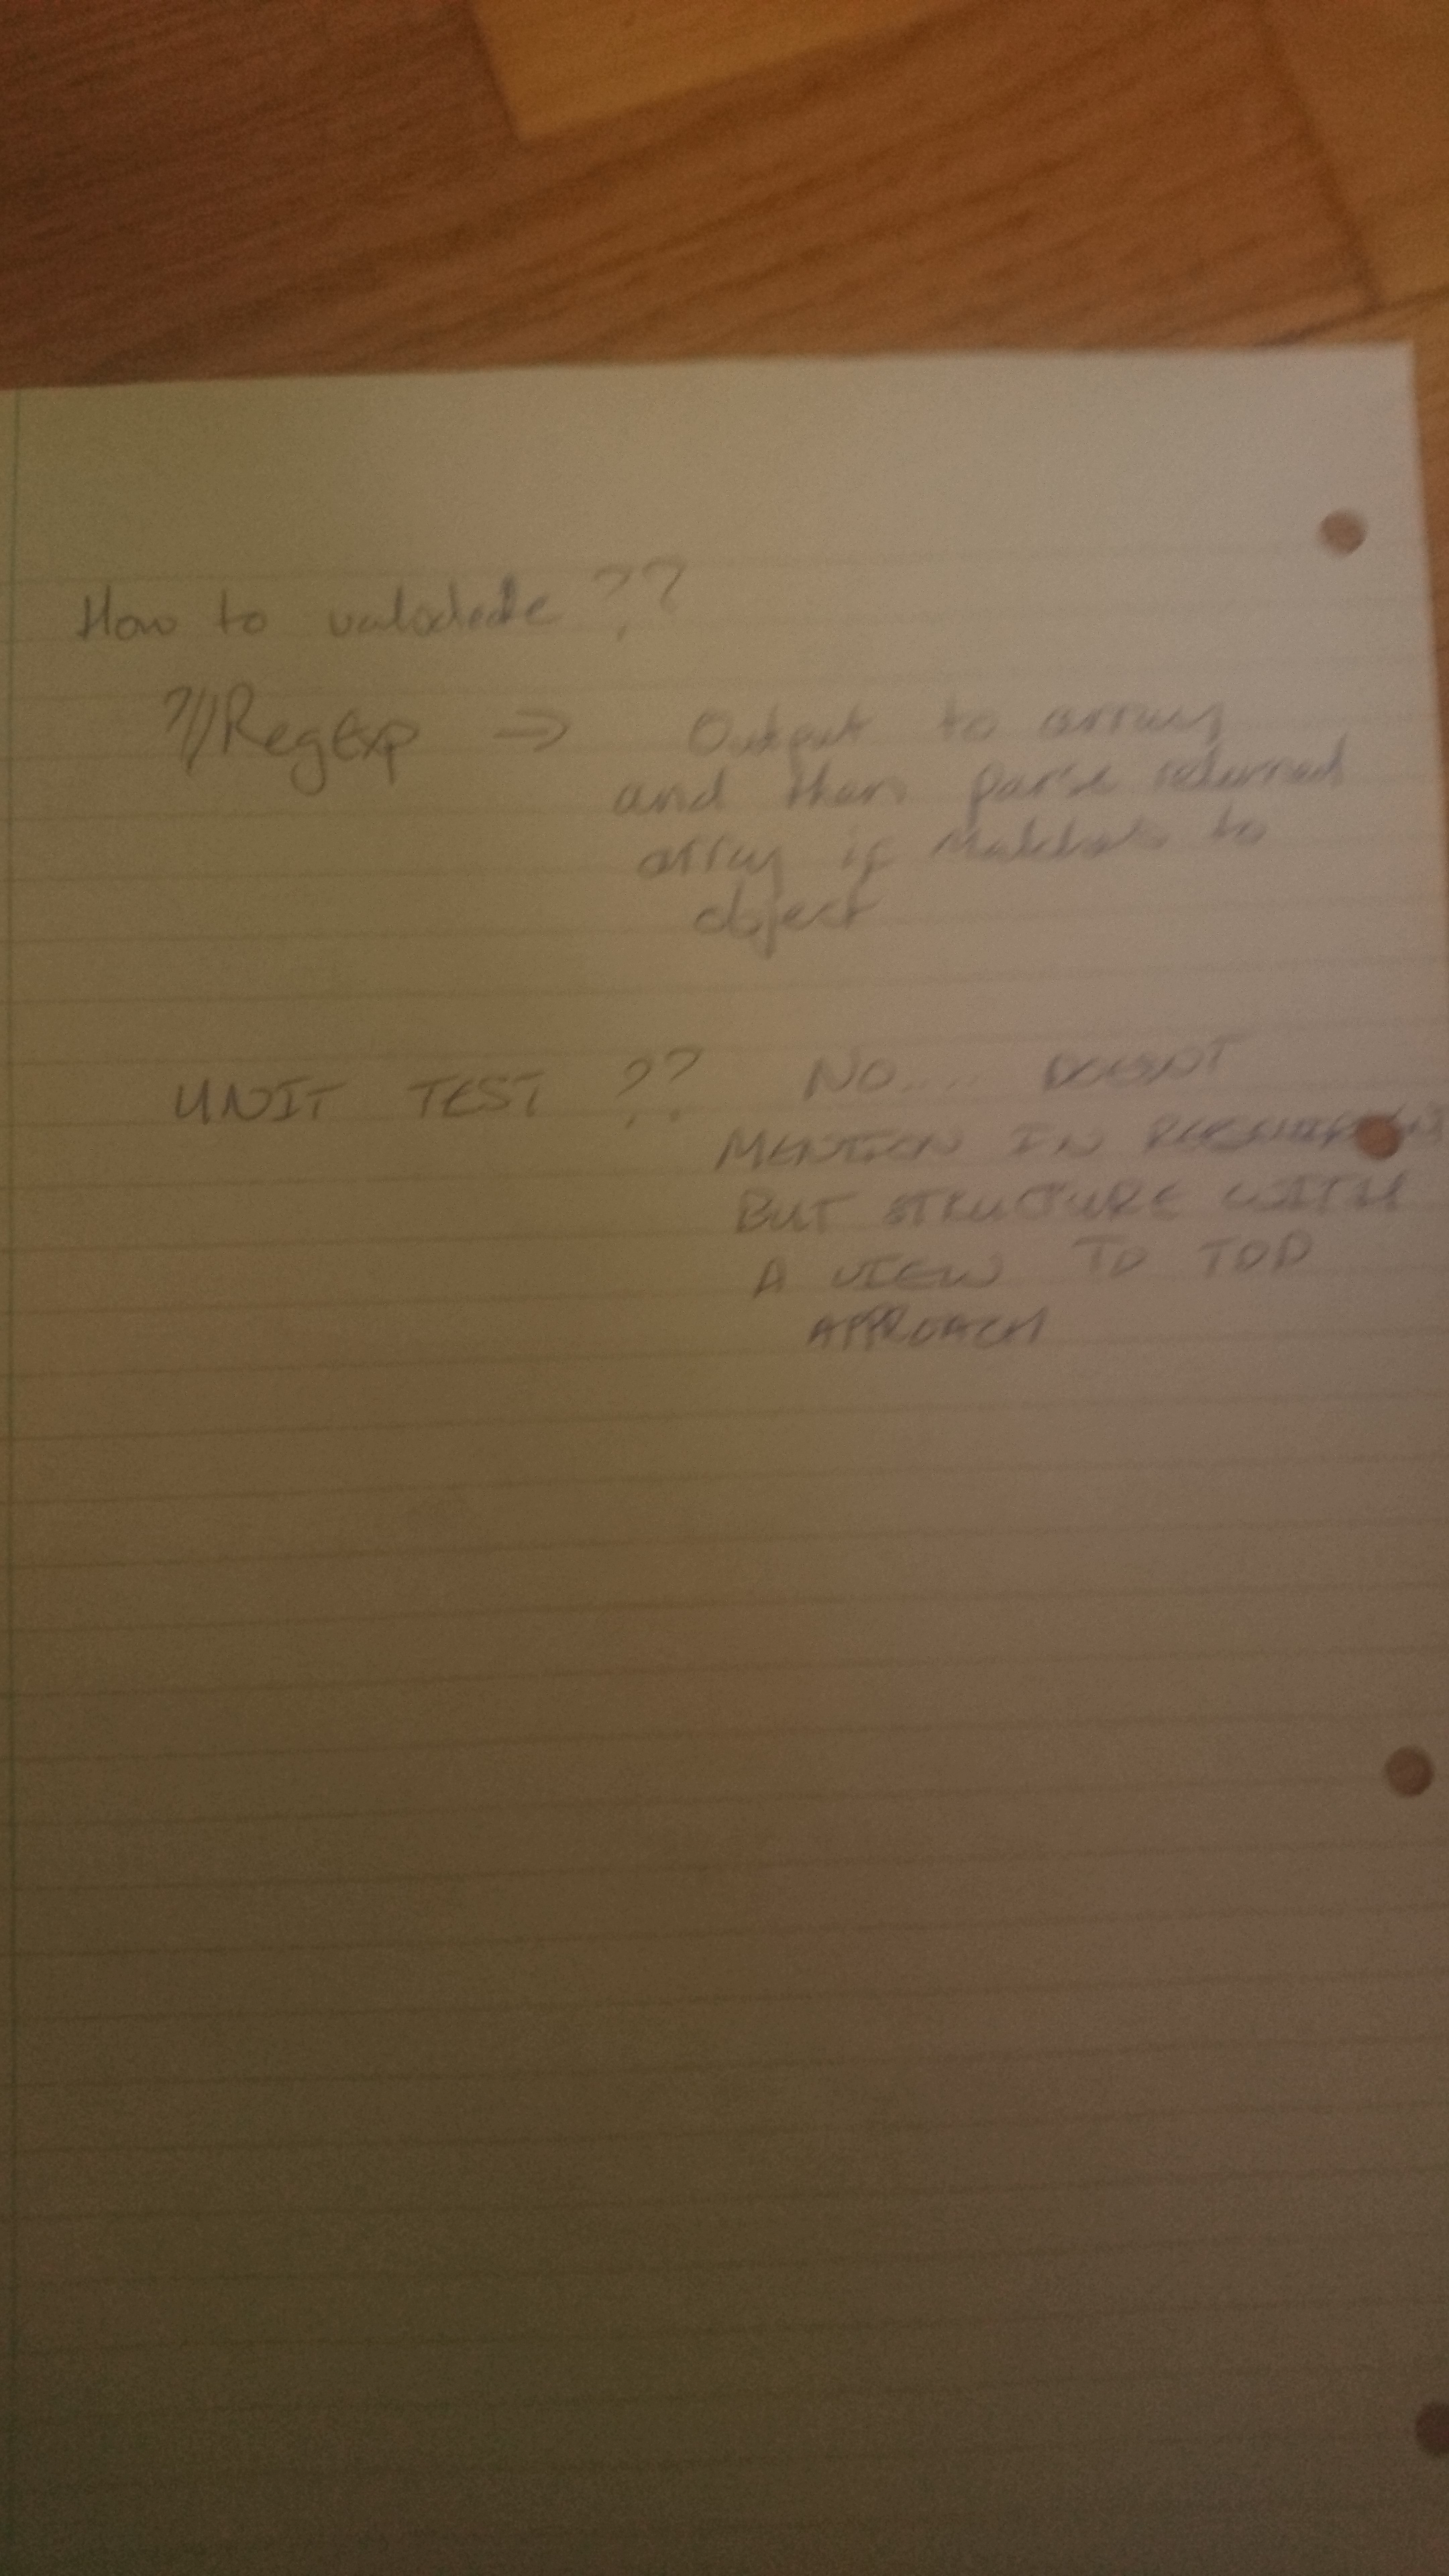 How to validate ??
?//RegExp → Output to array
and then parse returned
array if matches to
object
UNIT TEST ?? NO.... DOESNT
MENTION IN
BUT STRUCTURE WITH
A VIEW TO TDD
APPROACH